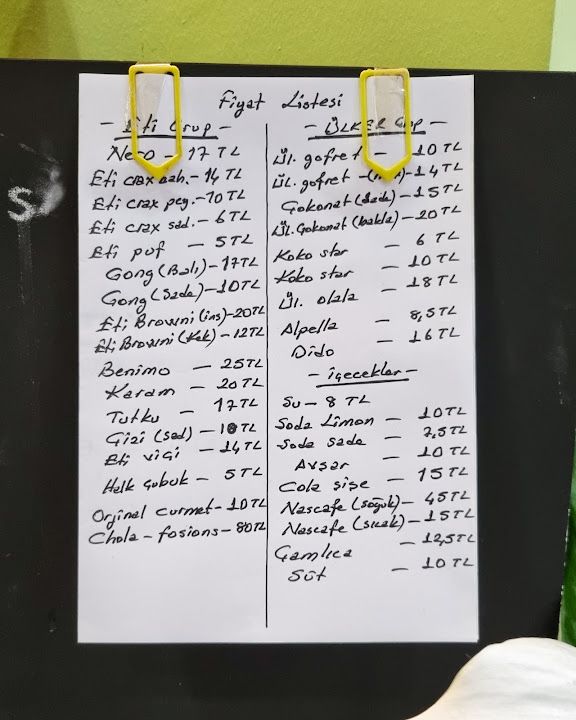 Fiyat Listesi
- Eti Grup -
Nero - 17 TL
Eti crax bah. - 14 TL
Eti crax peq. - 10 TL
Eti crax sad. - 6 TL
Eti puf - 5 TL
Gong (Balı) - 17 TL
Gong (Sade) - 10 TL
Eti Browni (ins) - 20 TL
Eti Browni (Kek) - 12 TL
Benimo - 25 TL
Karam - 20 TL
Tutku - 17 TL
Gizi (sad) - TL
Eti - 14 TL
Halk Çubuk - 5 TL
Orjinal curmet - 10 TL
Chola - fosions - 80 TL
- ÜLKER Grup -
Ül. gofret - 10 TL
Ül. gofret - 14 TL
Çokonat (Sade) - 15 TL
Ül. Çokonat (bakla) - 20 TL
Koko star - 6 TL
Koko star - 10 TL
Ül. olala - 18 TL
Alpella - 8,5 TL
Dido - 16 TL
- içecekler -
Su - 8 TL
Soda Limon - 10 TL
Soda sade - 7,5 TL
Avşar - 10 TL
Cola şişe - 15 TL
Nascafe (soğuk) - 45 TL
Nascafe (sıcak) - 15 TL
Çamlıca - 12,5 TL
Süt - 10 TL
S